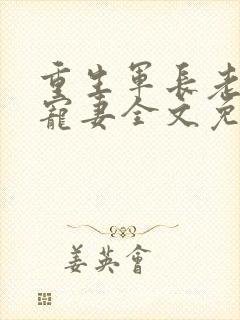 重生軍長老
寵妻全文免
姜英會